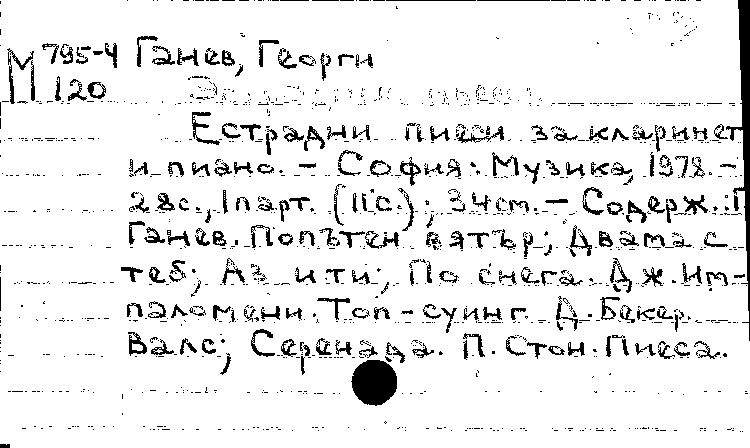 М 795-4 Ганев, Георги
120
Естрадни пиеси за кларинет
и пиано. – София: Музика, 1978. –
28с., 1 парт. (11с.); 34cm. – Содерж.: Г.
Ганев. Попътен вятър; Двама с
теб; Аз и ти; По снега. Дж. Им-
паломени. Топ-суинг. Д. Бекер.
Валс; Серенада. П. Стон. Пиеса.